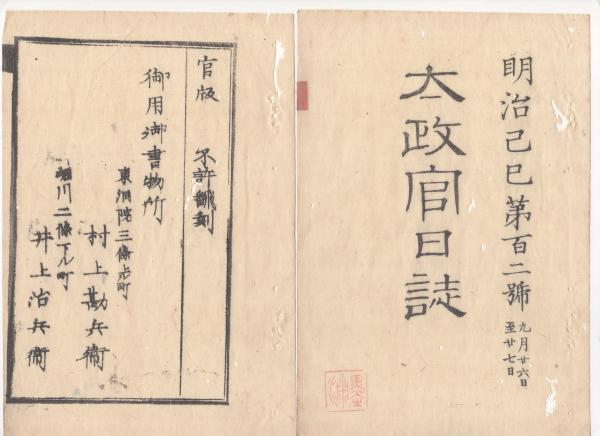 明治己巳第百二號
九月廿六日
至廿七日
太政官日誌
官版 不許翻刻
御用御書物所
東洞院三條上町
村上勘兵衞
堀川二條下ル町
井上治兵衞